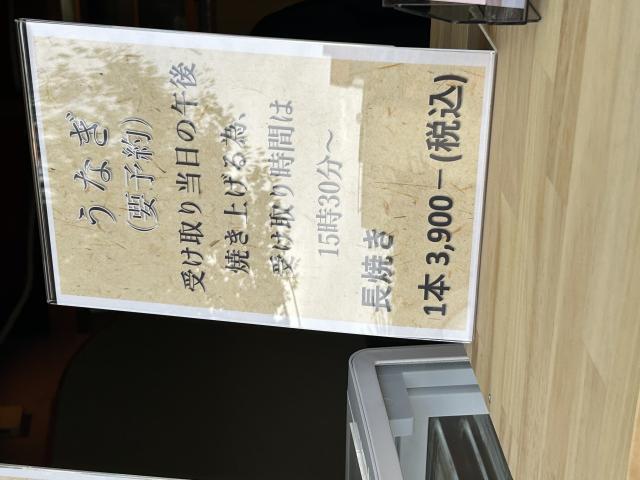 うなぎ
(要予約)
受け取り当日の午後
焼き上げる為、
受け取り時間は
15時30分～
長焼き
1本 3,900－(税込)